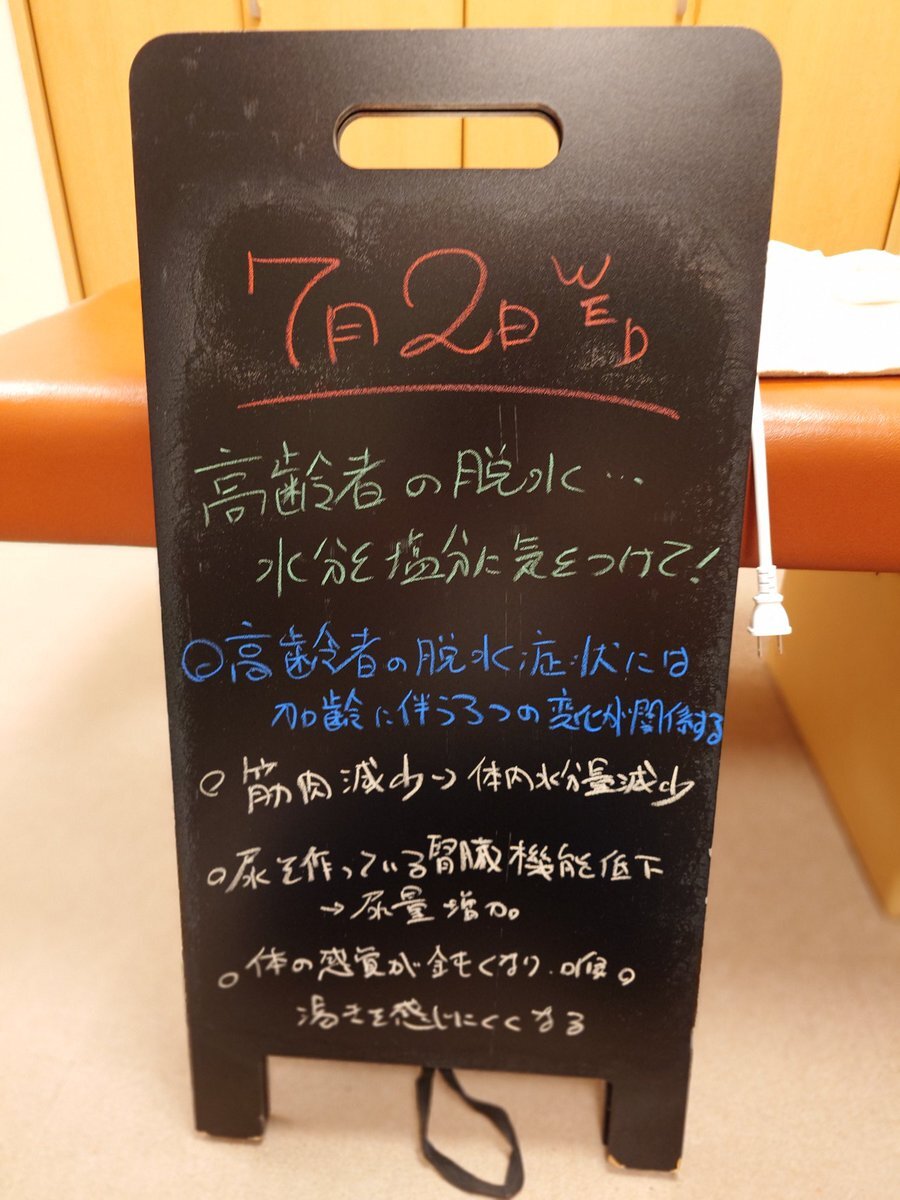 7月2日 WED
高齢者の脱水…
水分と塩分に気をつけて!
○高齢者の脱水症状には
加齢に伴う3つの変化が関係する
○筋肉減少→体内水分量減少
○尿を作っている腎臓機能低下
→尿量増加。
○体の感覚が鈍くなり、喉の
渇きを感じにくくなる